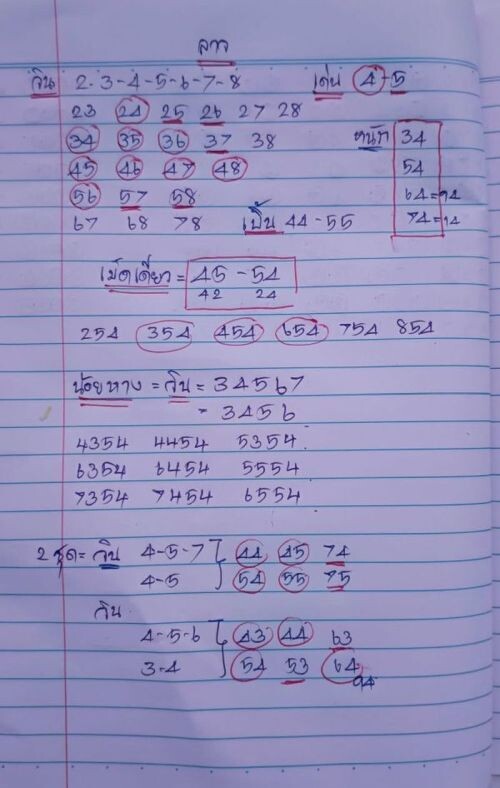 ลาว
วิน 2-3-4-5-6-7-8 เด่น 4-5
23 24 25 26 27 28
34 35 36 37 38 หนัก 34
45 46 47 48 54
56 57 58 64=94
67 68 78 เบิ้ล 44-55 74=14
เม็ดเดียว = 45-54
42 24
254 354 454 654 754 854
น้อยหาง = วิน = 34567
= 3456
4354 4454 5354
6354 6454 5554
7354 7454 6554
2 ชุด = วิน 4-5-7 44 45 74
4-5 54 55 75
วิน
4-5-6 43 44 63
3-4 54 53 64
94